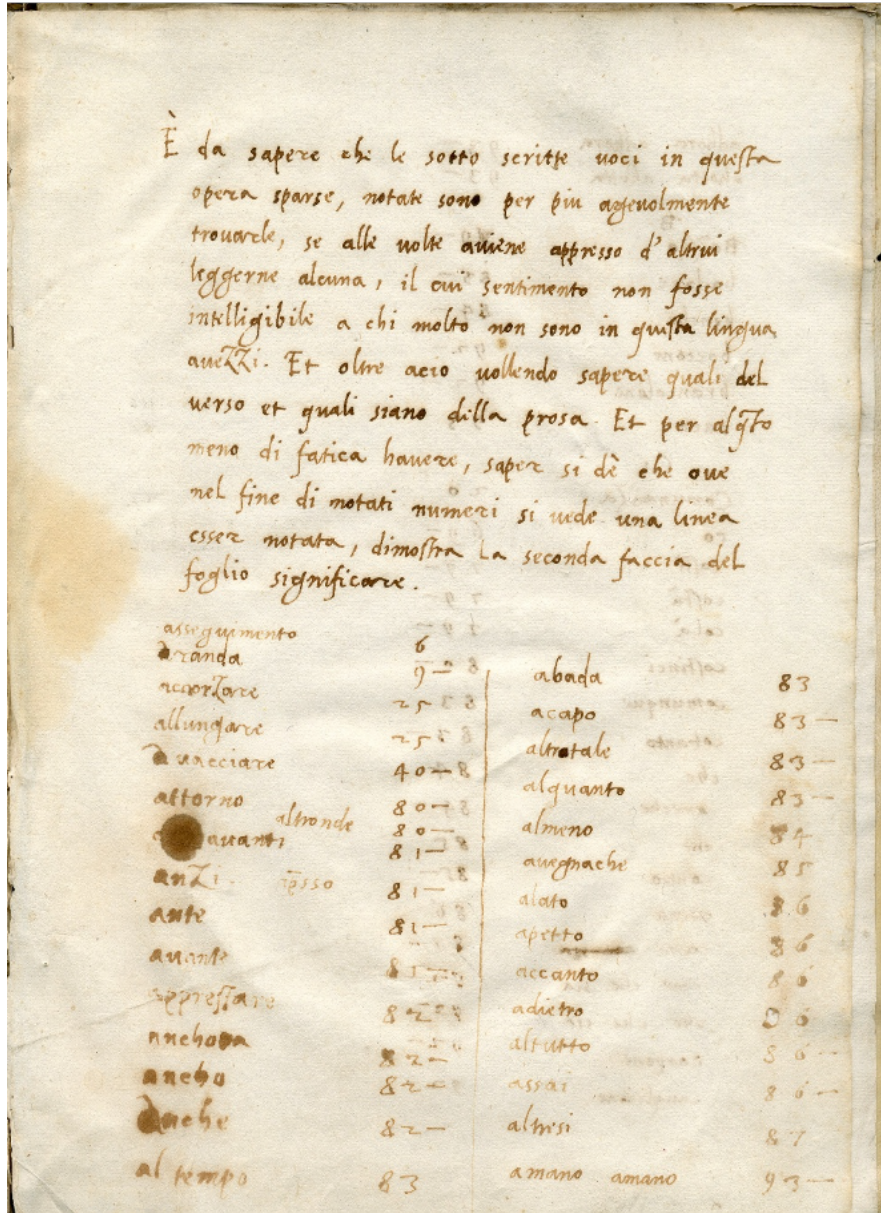 È da sapere che le sotto scritte uoci in questa
opera sparse, notate sono per piu agevolmente
trouarle, se alle uolte auiene appresso d'altrui
leggerne alcuna, il cui sentimento non fosse
intelligibile a chi molto non sono in questa lingua
auezzi. Et oltre acio uollendo sapere quali del
uerso et quali siano della prosa. Et per alq̃to
meno di fatica hauere, saper si dè che oue
nel fine di notati numeri si uede una linea
esser notata, dimostra la seconda faccia del
foglio significare.
asseguimento 6
aranda 9–
accorzare 25
allungare 25
auacciare 40–
attorno 80–
altronde 80–
auanti 81–
anzi. 81–
ante 81–
auante 81–
appressare 82–
anchora 82–
ancho 82–
anche 82–
al tempo 83
abada 83
acapo 83–
altrotale 83–
alquanto 83–
almeno 84
auegnache 85
alato 86
apetto 86
accanto 86
adietro 86
altutto 86–
assai 86–
altresi 87
amano amano 93–